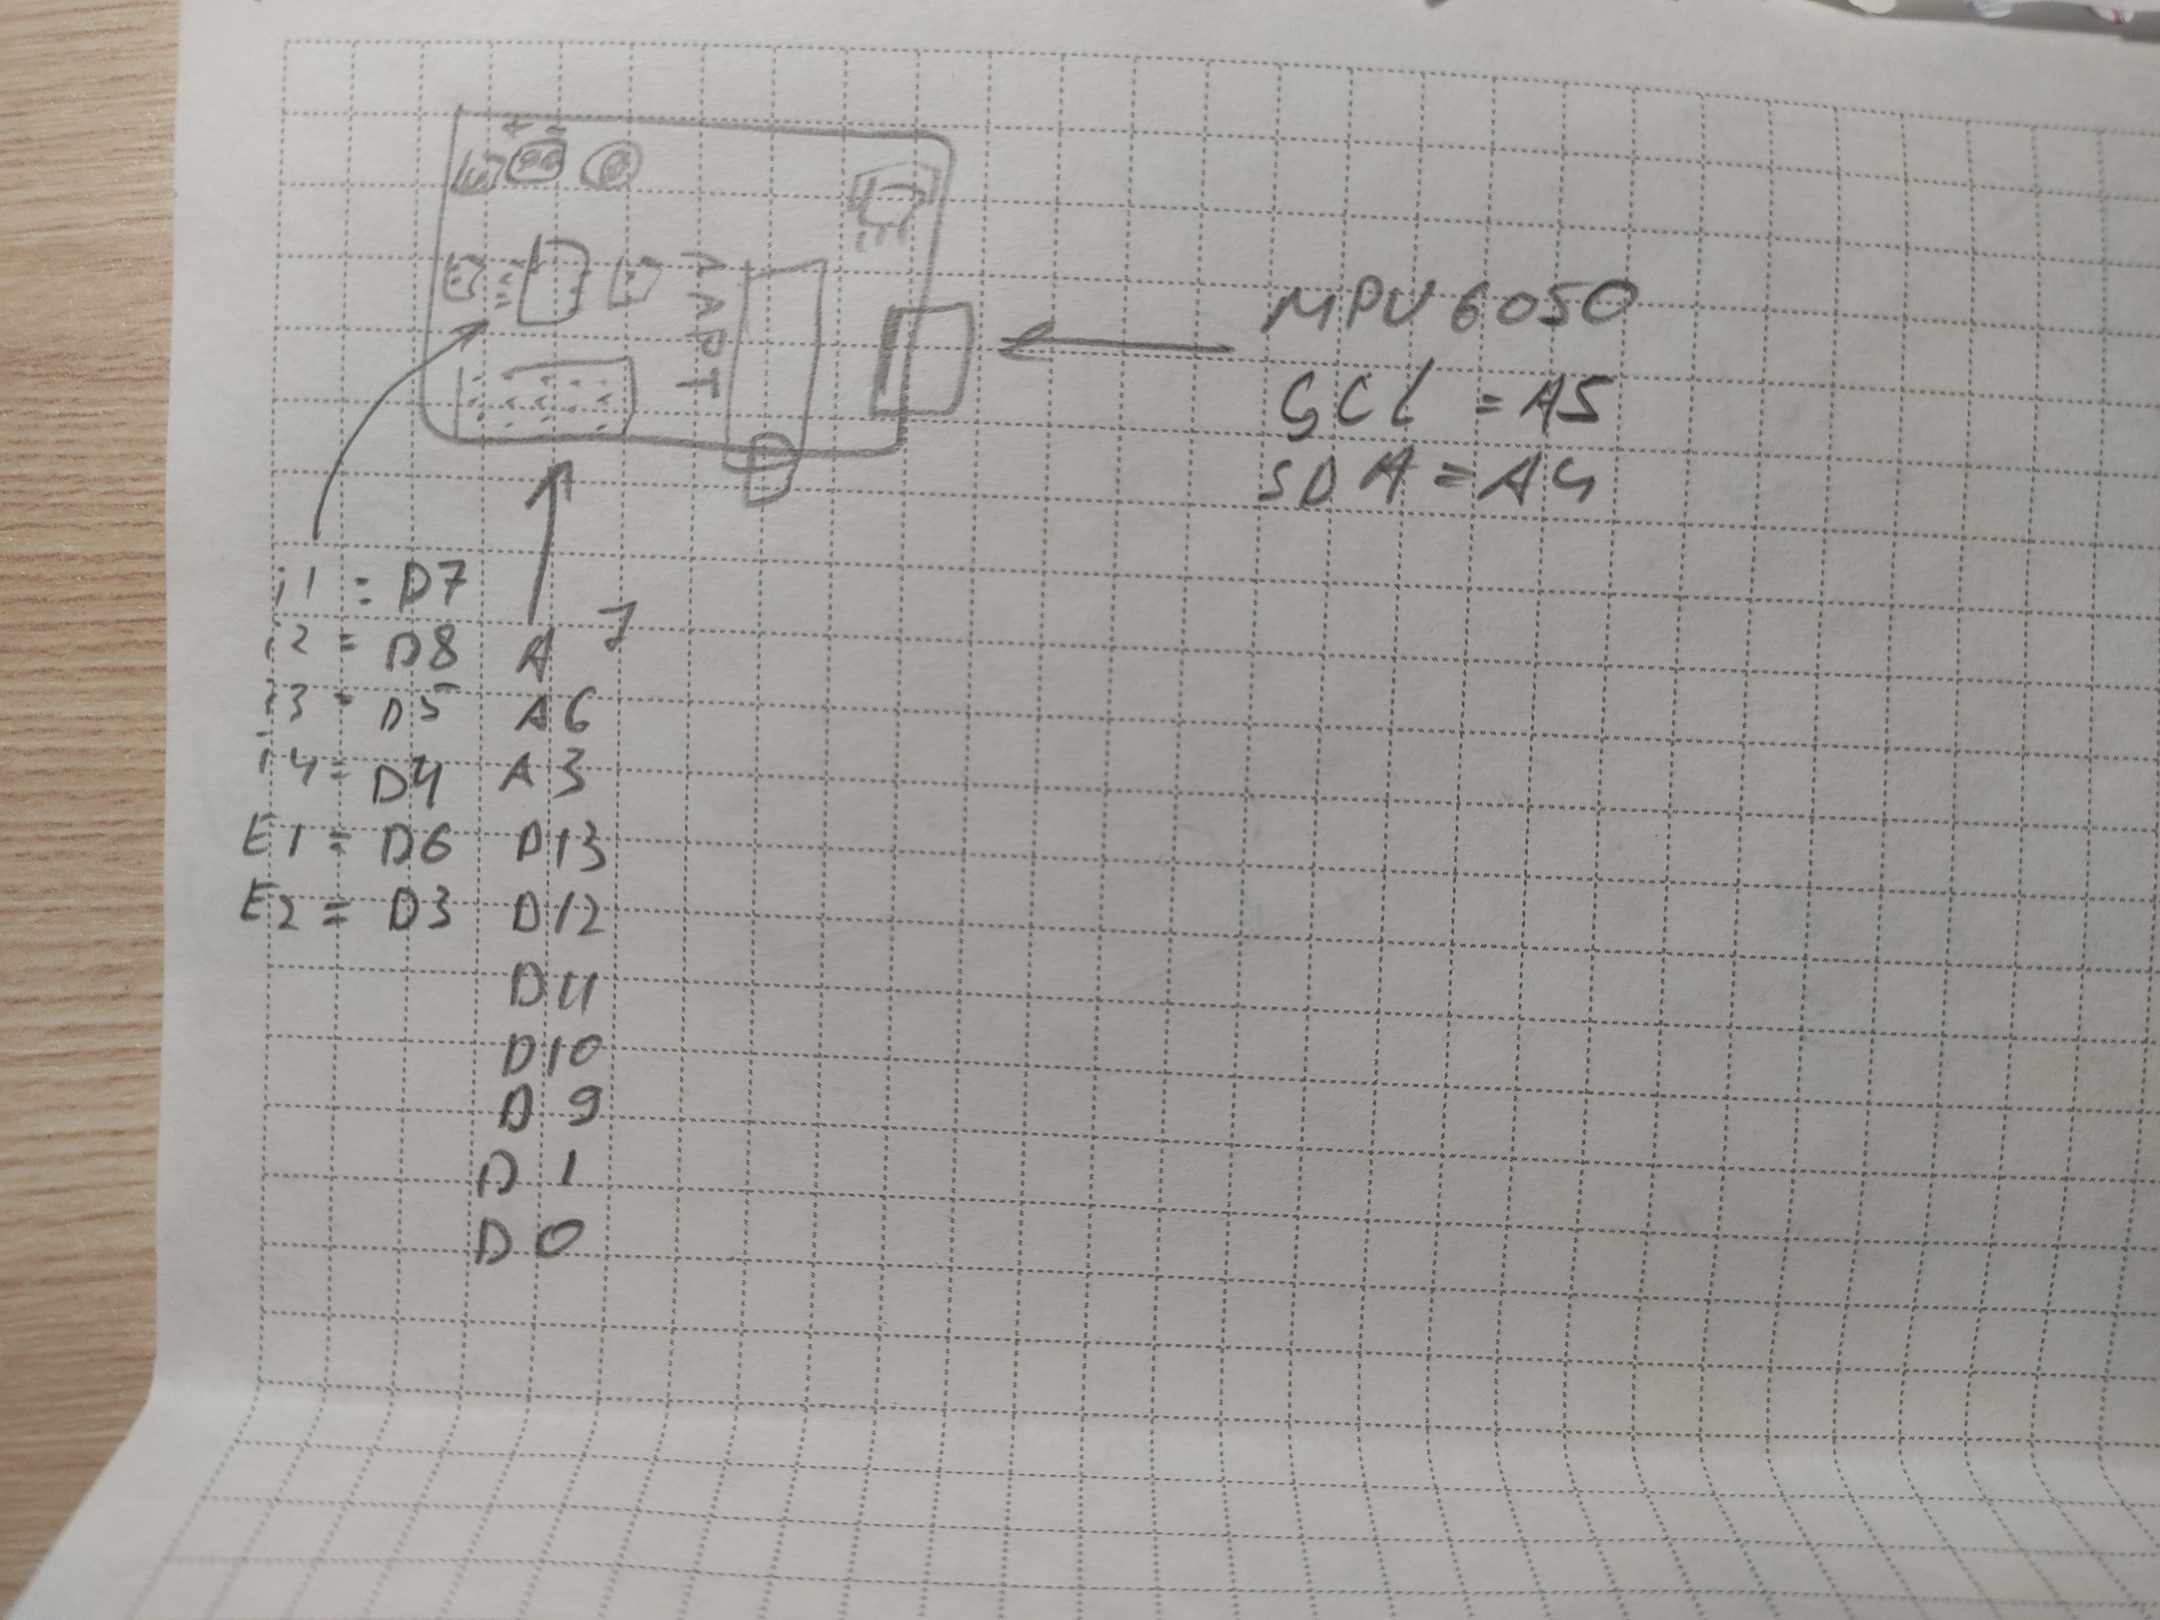 + -
MPU 6050
SCL = A5
SDA = A4
i1 = D7
i2 = D8
i3 = D5
i4 = D4
E1 = D6
E2 = D3
A 7
A6
A3
D13
D12
D11
D10
D9
D1
D0